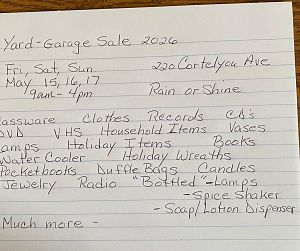 Yard-Garage Sale 2026
Fri, Sat, Sun 220 Cortelyou Ave
May 15, 16, 17
9am - 4pm Rain or Shine
assware Clothes Records CD's
DVD VHS Household Items Vases
amps Holiday Items Books
Water Cooler Holiday Wreaths
Pocketbooks Duffle Bags Candles
Jewelry Radio "Bottled"-Lamps
-Spice Shaker
-Soap/Lotion Dispenser
Much more -